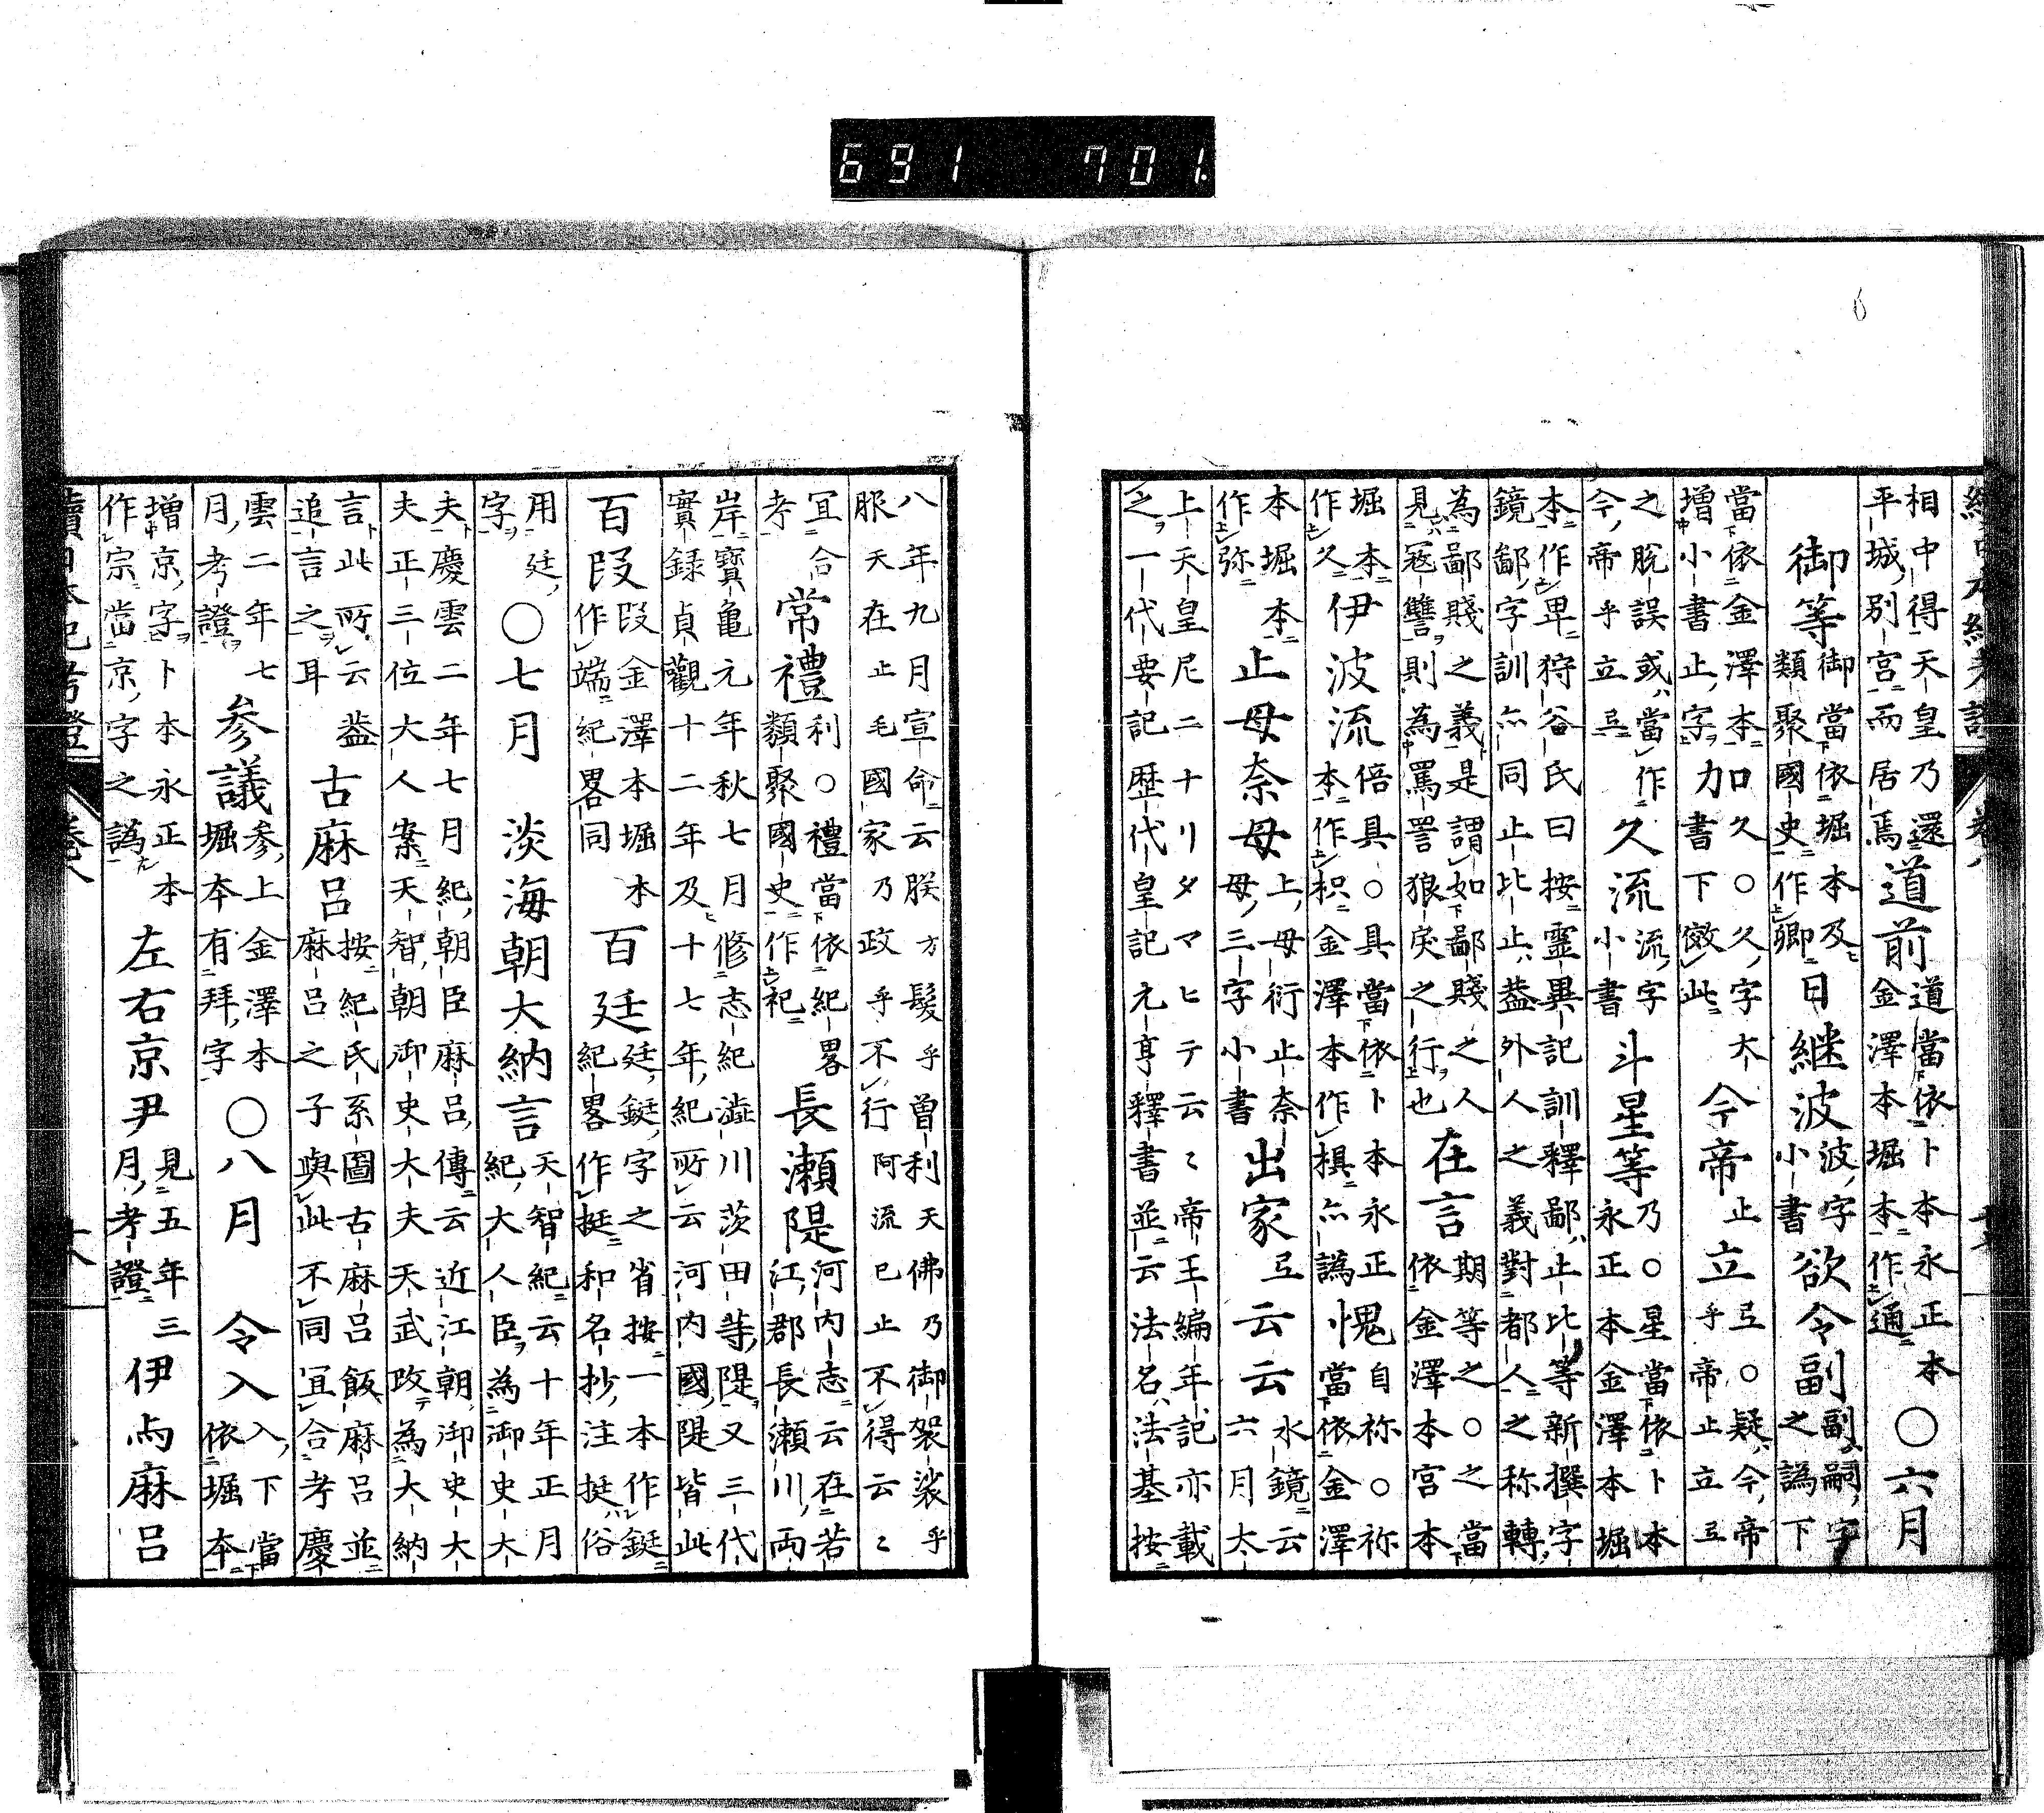 691 701.
6
相中得天皇乃還
平城別宮而居焉道前道當依卜本永正本金澤本堀本作通〇六月
御等御當依堀本及類聚國史作卿日継波波字小書欲令副副嗣字之譌下
當依金澤本口久〇久字大
增小書止字力書下倣此今帝止立弖〇疑今帝乎帝止立弖
之脫誤或當作
今帝乎立弖久流流字小書斗星等乃〇星當依卜本永正本金澤本堀
本作卑狩谷氏曰按靈異記訓釋鄙止比等新撰字
鏡鄙字訓亦同止比止盖外人之義對都人之称轉
為鄙賤之義是謂如鄙賤之人
見冦讐則為罵詈狼戾之行也在言期等之〇之當依金澤本宮本
堀本
作久伊波流倍具〇具當依卜本永正本作枳金澤本作椇亦譌愧自祢〇祢當依金澤
本堀本
作弥止母奈母上母衍止奈母三字小書出家弖云云水鏡云六月太
上天皇尼ニナリタマヒテ云〻帝王編年記亦載
之一代要記歴代皇記元亨釋書並云法名法基按
八年九月宣命云朕方髮乎曽利天佛乃御袈裟乎
服天在止毛國家乃政乎不行阿流已止不得云〻
宜合
考常禮利〇禮當依紀畧類聚國史作祀長瀬隄河内志云在若江郡長瀬川両
岸寶亀元年秋七月修志紀澁川茨田等隄又三代
實録貞觀十二年及十七年紀所云河内國隄皆此
百段段金澤本堀本作端紀畧同百廷廷鋌字之省按一本作鋌紀畧作挺和名抄注挺俗
用廷
字〇七月　淡海朝大納言天智紀云十年正月紀大人臣為御史大
夫慶雲二年七月紀朝臣麻呂傳云近江朝御史大
夫正三位大人案天智朝御史大夫天武政為大納
言此所云盖
追言之耳古麻呂按紀氏系圖古麻呂飯麻呂並麻呂之子與此不同宜合考慶
雲二年七
月考證参議参上金澤本堀本有拜字〇八月　令入入下當依堀本
增京字卜本永正本
作宗當京字之譌左右京尹見五年三月考證伊与麻呂